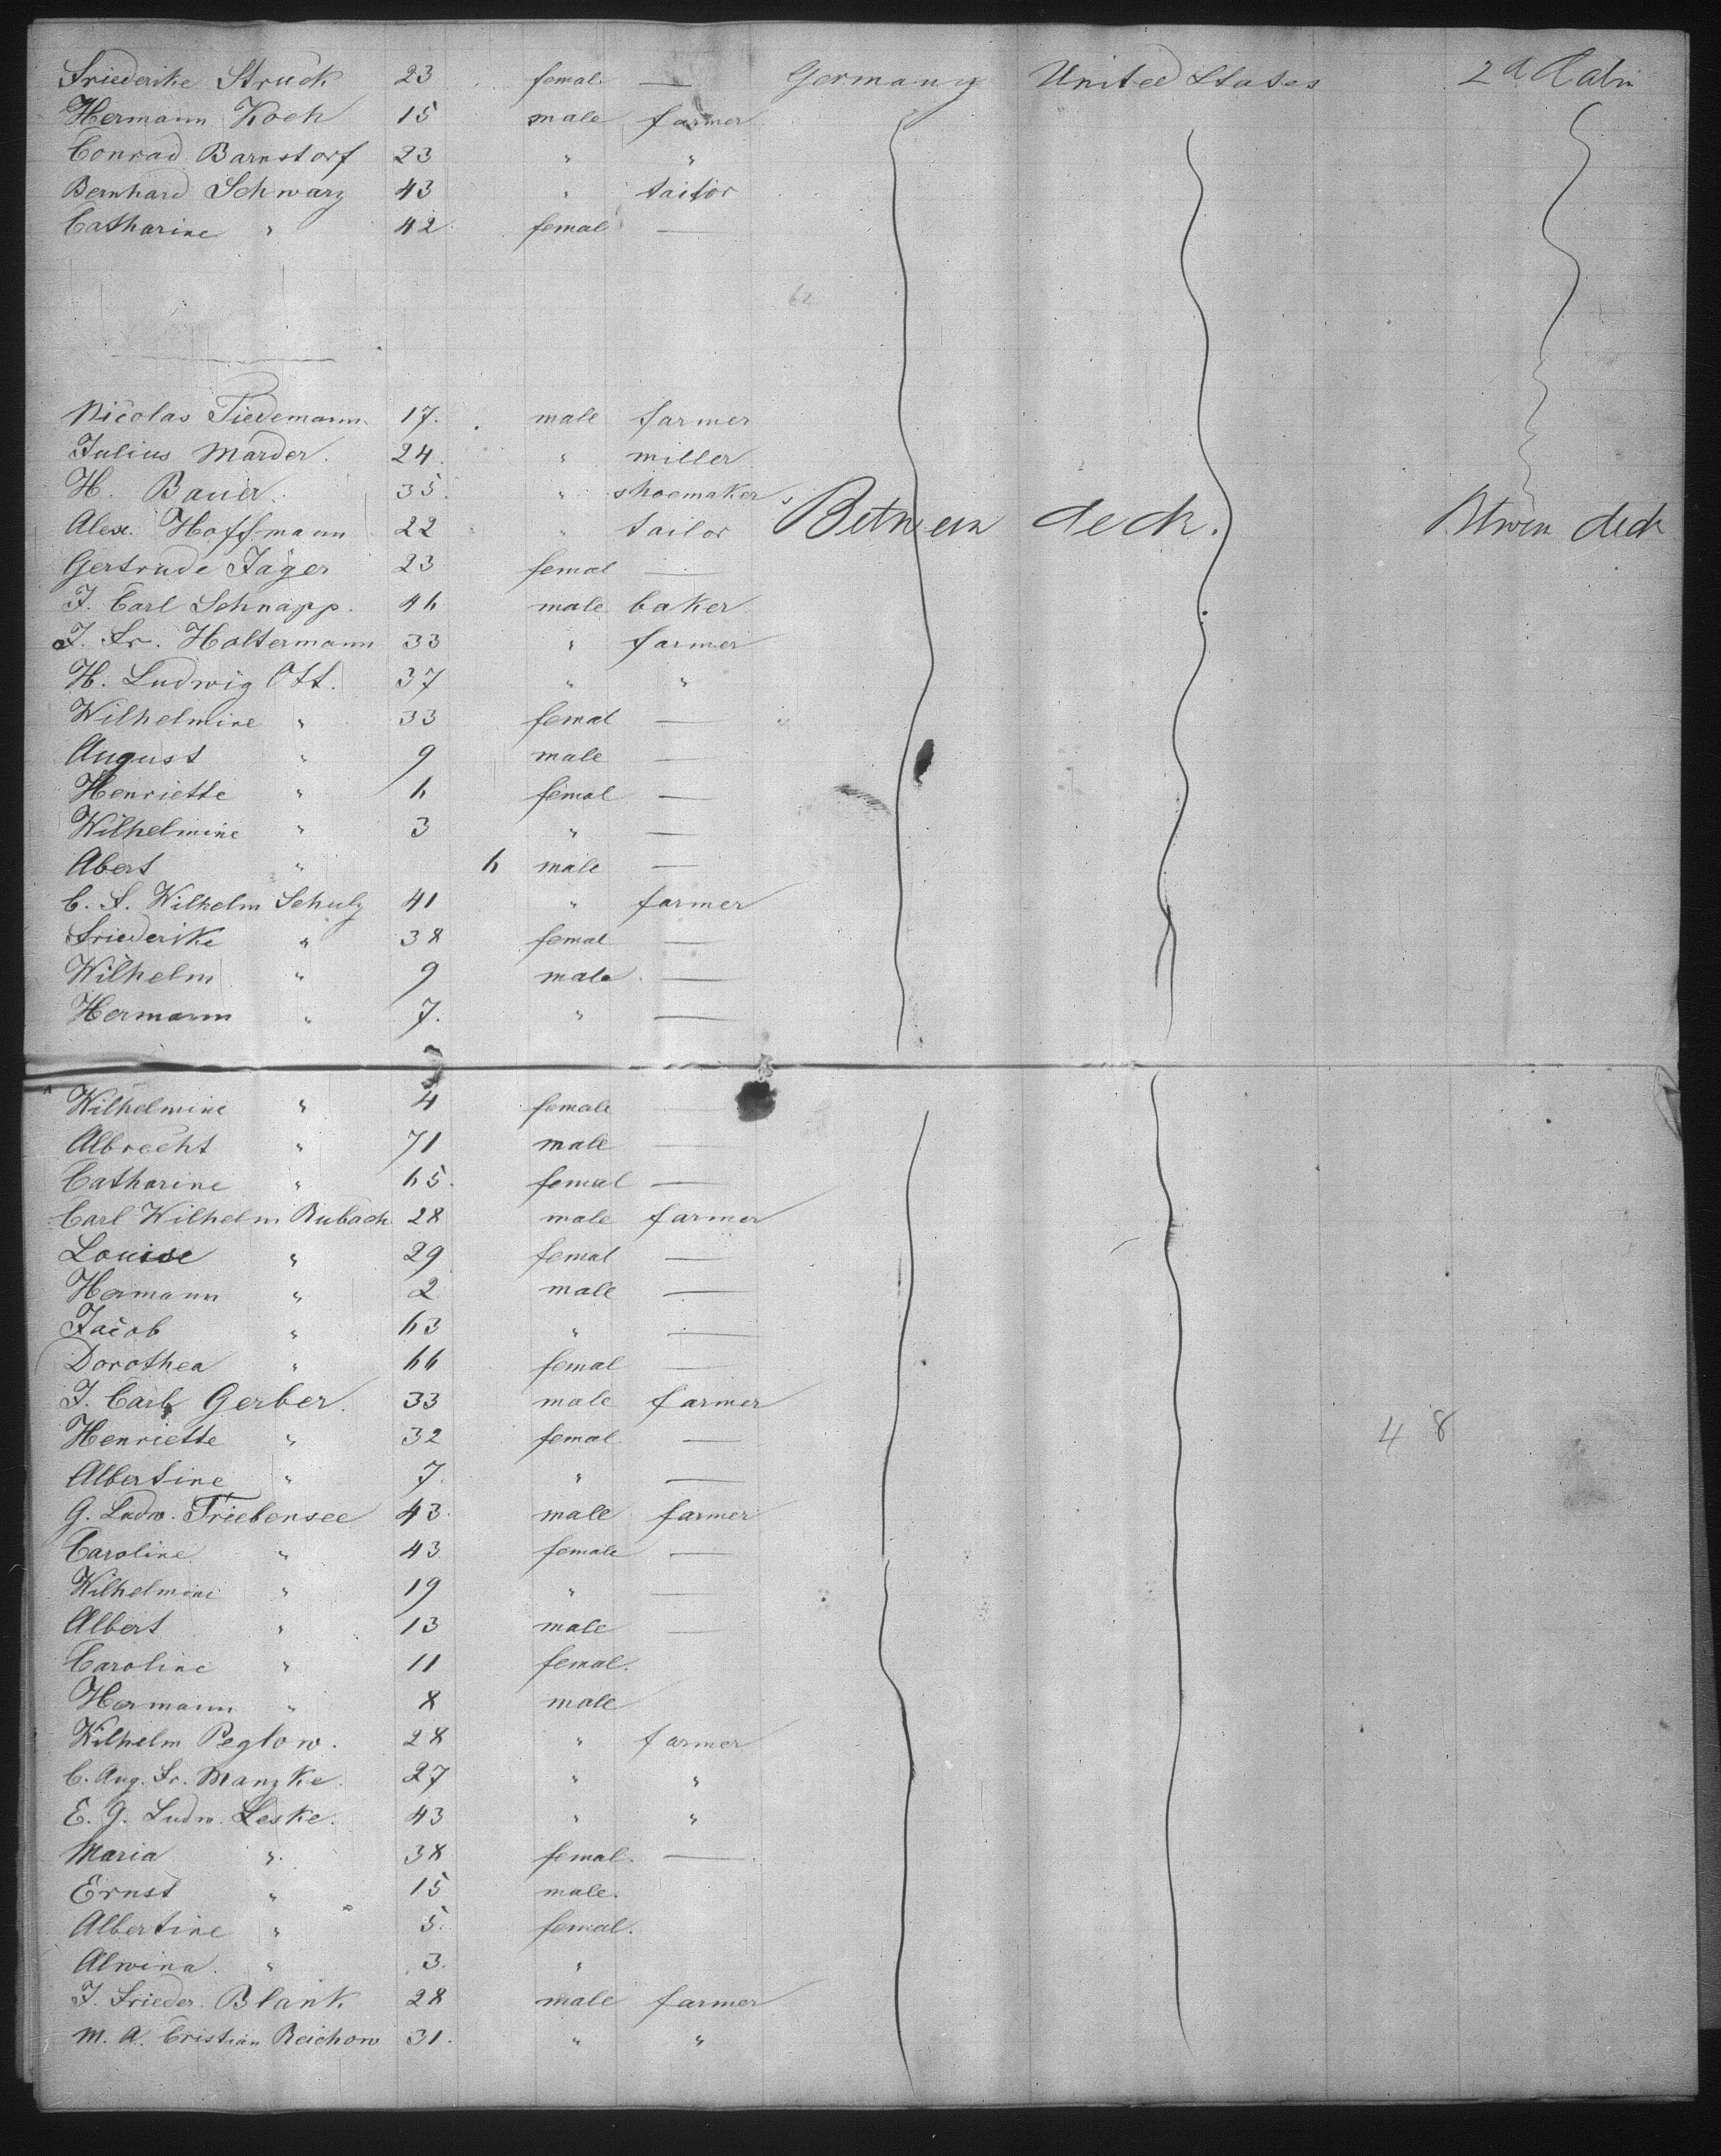 Friederike Struck 23 femal — Germany United States 2d Cabin
Hermann Koch 15 male farmer
Conrad Barnstorf 23 " "
Bernhard Schwarz 43 " tailor
Catharine " 42 femal —
62
Nicolas Tiedemann 17. male farmer
Julius Marder. 24 " miller
H. Bauer. 35. " shoemaker
Alex. Hoffmann 22 " tailor Between deck. Btwen deck
Gertrude Jäger 23 femal —
J. Carl Schnapp. 46 male baker
J. Fr. Holtermann 33 " farmer
H. Ludwig Ott. 37 " "
Wilhelmine " 33 femal —
August " 9 male —
Henriette " 6 femal —
Wilhelmine " 3 " —
Abert " 6 male —
C. F. Wilhelm Schulz 41 " farmer
Friederike " 38 femal —
Wilhelm " 9 male —
Hermann " 7. " —
Wilhelmine " 4 female —
Albrecht " 71 male —
Catharine " 65. femal —
Carl Wilhelm Rubach 28 male farmer
Louise " 29 femal —
Hermann " 2 male —
Jacob " 63 " —
Dorothea " 66 femal —
J. Carl Gerber. 33 male farmer
Henriette " 32 femal — 48
Albertine " 7. " —
G. Ludw. Triebensee 43. male farmer
Caroline " 43 female —
Wilhelmine " 19 " —
Albert " 13 male —
Caroline " 11 femal.
Hermann " 8 male
Wilhelm Peglow. 28 " farmer
C. Aug. Fr. Manzke. 27 " "
E. G. Ludw. Leske. 43 " "
Maria " 38 femal. —
Ernst " 15 male.
Albertine " 5. femal.
Alwina. " 3. "
J. Frieder. Blank 28 male farmer
M. A. Cristian Reichow 31. " "